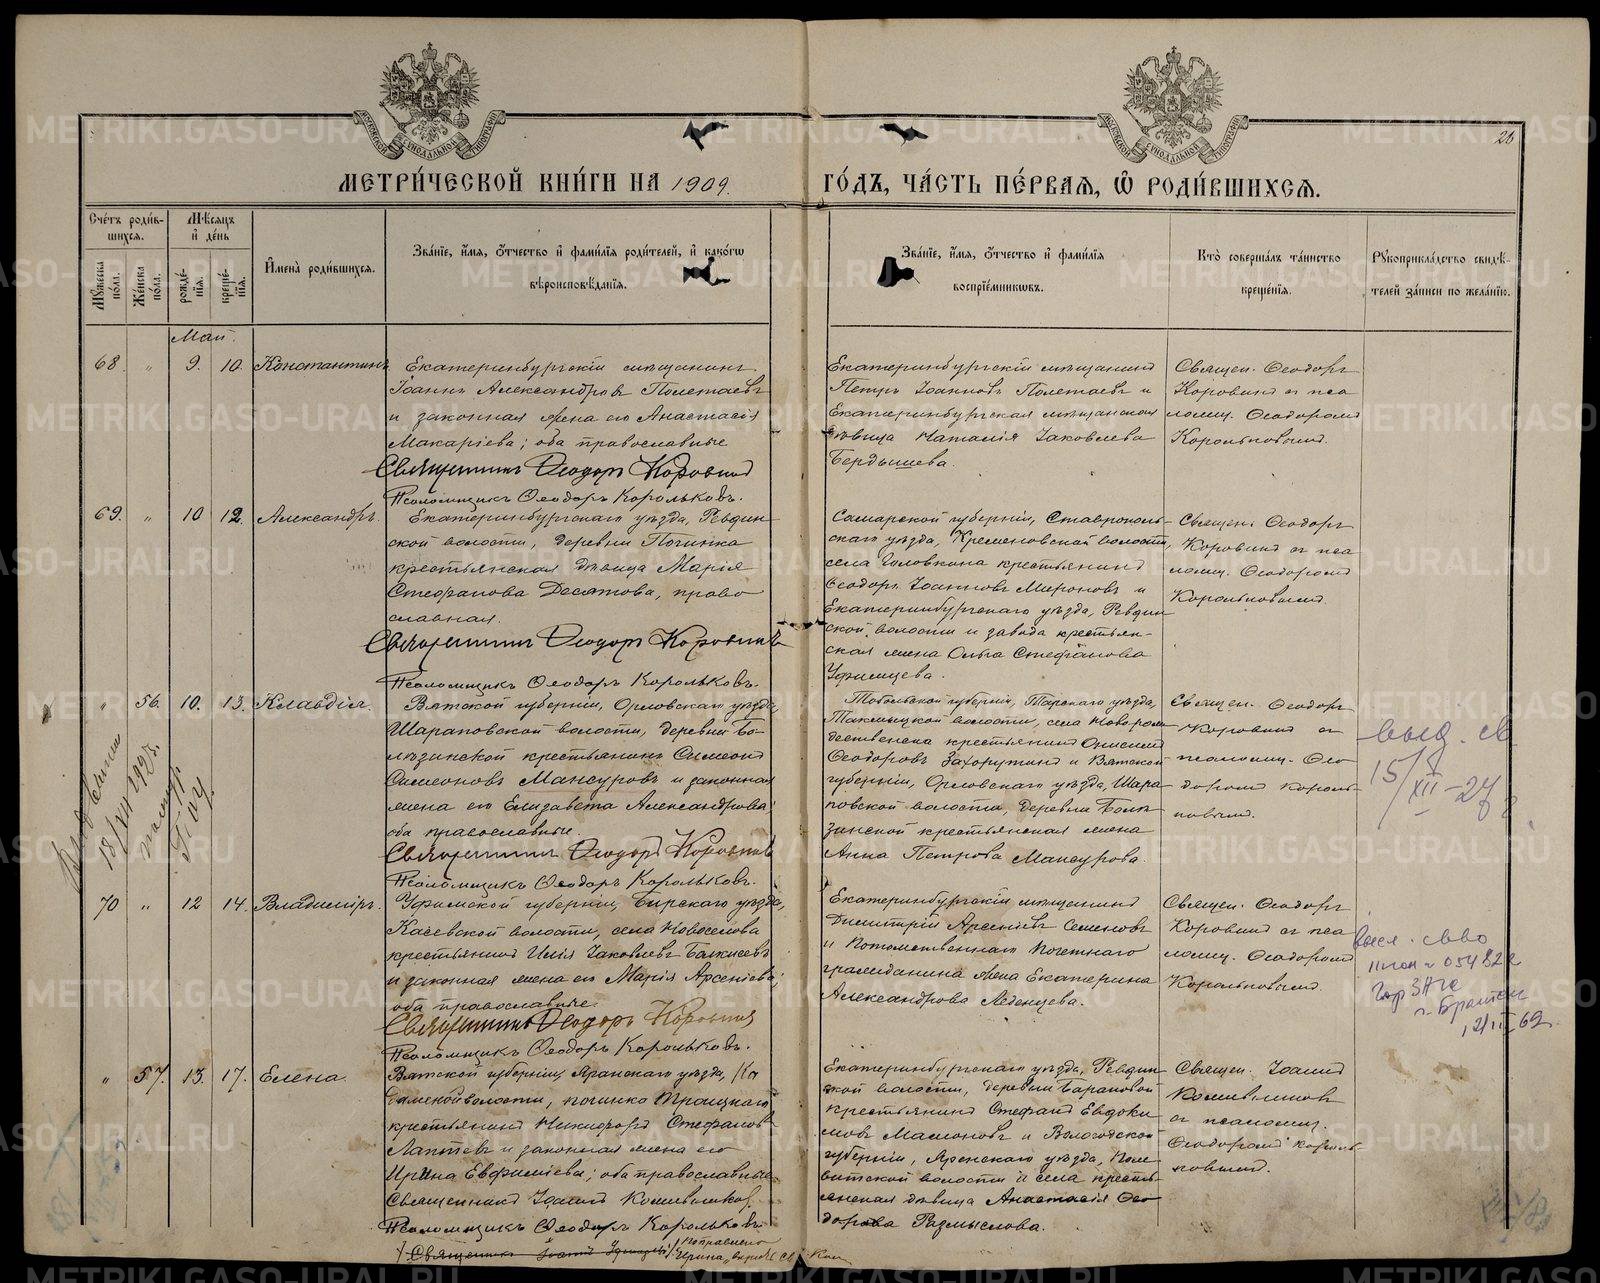 МЕТРИ́ЧЕСКОЙ КНИ́ГИ НА 1909.
ГО́ДЪ, ЧА́СТЬ ПЕ́РВАѦ, Ѽ РОДИ́ВШИХСѦ.
Сче́тъ роди́в-
шихсѧ.
Мѣ́сѧцъ
и҆ де́нь
Мꙋ́жеска по́ла.
Же́нска по́ла.
рожде́-
нїѧ.
креще́-
нїѧ.
И҆мена̀ роди́вшихсѧ.
Зва́нїе, и҆́мѧ, ѻ҆́тчество и҆ фами́лїѧ роди́телей, и҆ како́гѡ
вѣроисповѣ́данїѧ.
Зва́нїе, и҆́мѧ, ѻ҆́тчество и҆ фами́лїѧ
воспрїе́мникѡвъ.
Кто̀ соверша́лъ та́инство
креще́нїѧ.
Рꙋкоприкла́дство свидѣ́-
телей за́писи по жела́нїю.
Май.
68. " 9. 10. Константинъ
Екатеринбургскій мѣщанинъ
Іоаннъ Александровъ Полетаевъ
и законная жена его Анастасія
Макаріева; оба православные
Священникъ Ѳеодоръ Коровинъ
Псаломщикъ Ѳеодоръ Корольковъ.
Екатеринбургскій мѣщанинъ
Петръ Іоанновъ Полетаевъ и
Екатеринбургская мѣщанская
дѣвица Наталія Іаковлева
Бердышева.
Священ. Ѳеодоръ
Коровинъ съ пса
ломщ. Ѳеодоромъ
Корольковымъ.
69. " 10 12. Александръ.
Екатеринбургскаго уѣзда, Ревдин
ской волости, деревни Починка
крестьянская дѣвица Марія
Стефанова Десятова, право
славная.
Священникъ Ѳеодоръ Коровинъ
Псаломщикъ Ѳеодоръ Корольковъ.
Самарской губерніи, Ставрополь-
скаго уѣзда, Кременовской волости,
села Головкина крестьянинъ
Ѳеодоръ Іоанновъ Мироновъ и
Екатеринбургскаго уѣзда, Ревдин
ской волости и завода крестьян-
ская жена Ольга Стефанова
Уфимцева.
Священ. Ѳеодоръ
Коровинъ съ пса
ломщ. Ѳеодоромъ
Корольковымъ.
" 56. 10. 13. Клавдія.
Вятской губерніи, Орловскаго уѣзда,
Шарановской волости, деревни Бо-
лязинской крестьянинъ Симеонъ
Симеоновъ Мансуровъ и законная
жена его Елизавета Александрова;
оба православные.
Священникъ Ѳеодоръ Коровинъ
Псаломщикъ Ѳеодоръ Корольковъ.
Тобольской губерніи, Тарскаго уѣзда,
волости, села Новорож
дественска крестьянинъ Онисимъ
Ѳеодоровъ и Вятской
губерніи, Орловскаго уѣзда, Шара
новской волости, деревни
крестьянская жена
Анна Петрова Мансурова.
Священ. Ѳеодоръ
Коровинъ съ
псаломщ. Ѳео
доромъ Король-
ковымъ.
выд. св
15/XII-27
18/XII 1927
70 " 12 14. Владиміръ.
Уфимской губерніи, Бирскаго уѣзда,
Касевской волости, села Новоселова
крестьянинъ Илія Іаковлевъ
и законная жена его Марія Арсеніева;
оба православные.
Священникъ Ѳеодоръ Коровинъ
Псаломщикъ Ѳеодоръ Корольковъ.
Екатеринбургскій мѣщанинъ
Димитрій Арсеніевъ Семеновъ
и Потомственнаго Почетнаго
гражданина жена Екатерина
Александрова Леденцова.
Священ. Ѳеодоръ
Коровинъ съ пса
ломщ. Ѳеодоромъ
Корольковымъ.
св-во
" 57. 13. 17. Елена.
Вятской губерніи, Яранскаго уѣзда,
волости, починка Троицкаго
крестьянинъ Никифоръ Стефановъ
Лаптевъ и законная жена его
Ирина Евфиміева; оба православные
Священникъ Іоаннъ
Псаломщикъ Ѳеодоръ Корольковъ.
Екатеринбургскаго уѣзда, Ревдин
ской волости, деревни Барановой
крестьянинъ Стефанъ Евдоки
мовъ Мамоновъ и Вологодской
губерніи, Яренскаго уѣзда,
волости и села кресть-
янская дѣвица Анастасія Ѳео
дорова Размыслова.
Священ. Іоаннъ
съ псаломщ.
Ѳеодоромъ Король-
ковымъ.
METRIKI.GASO-URAL.RU